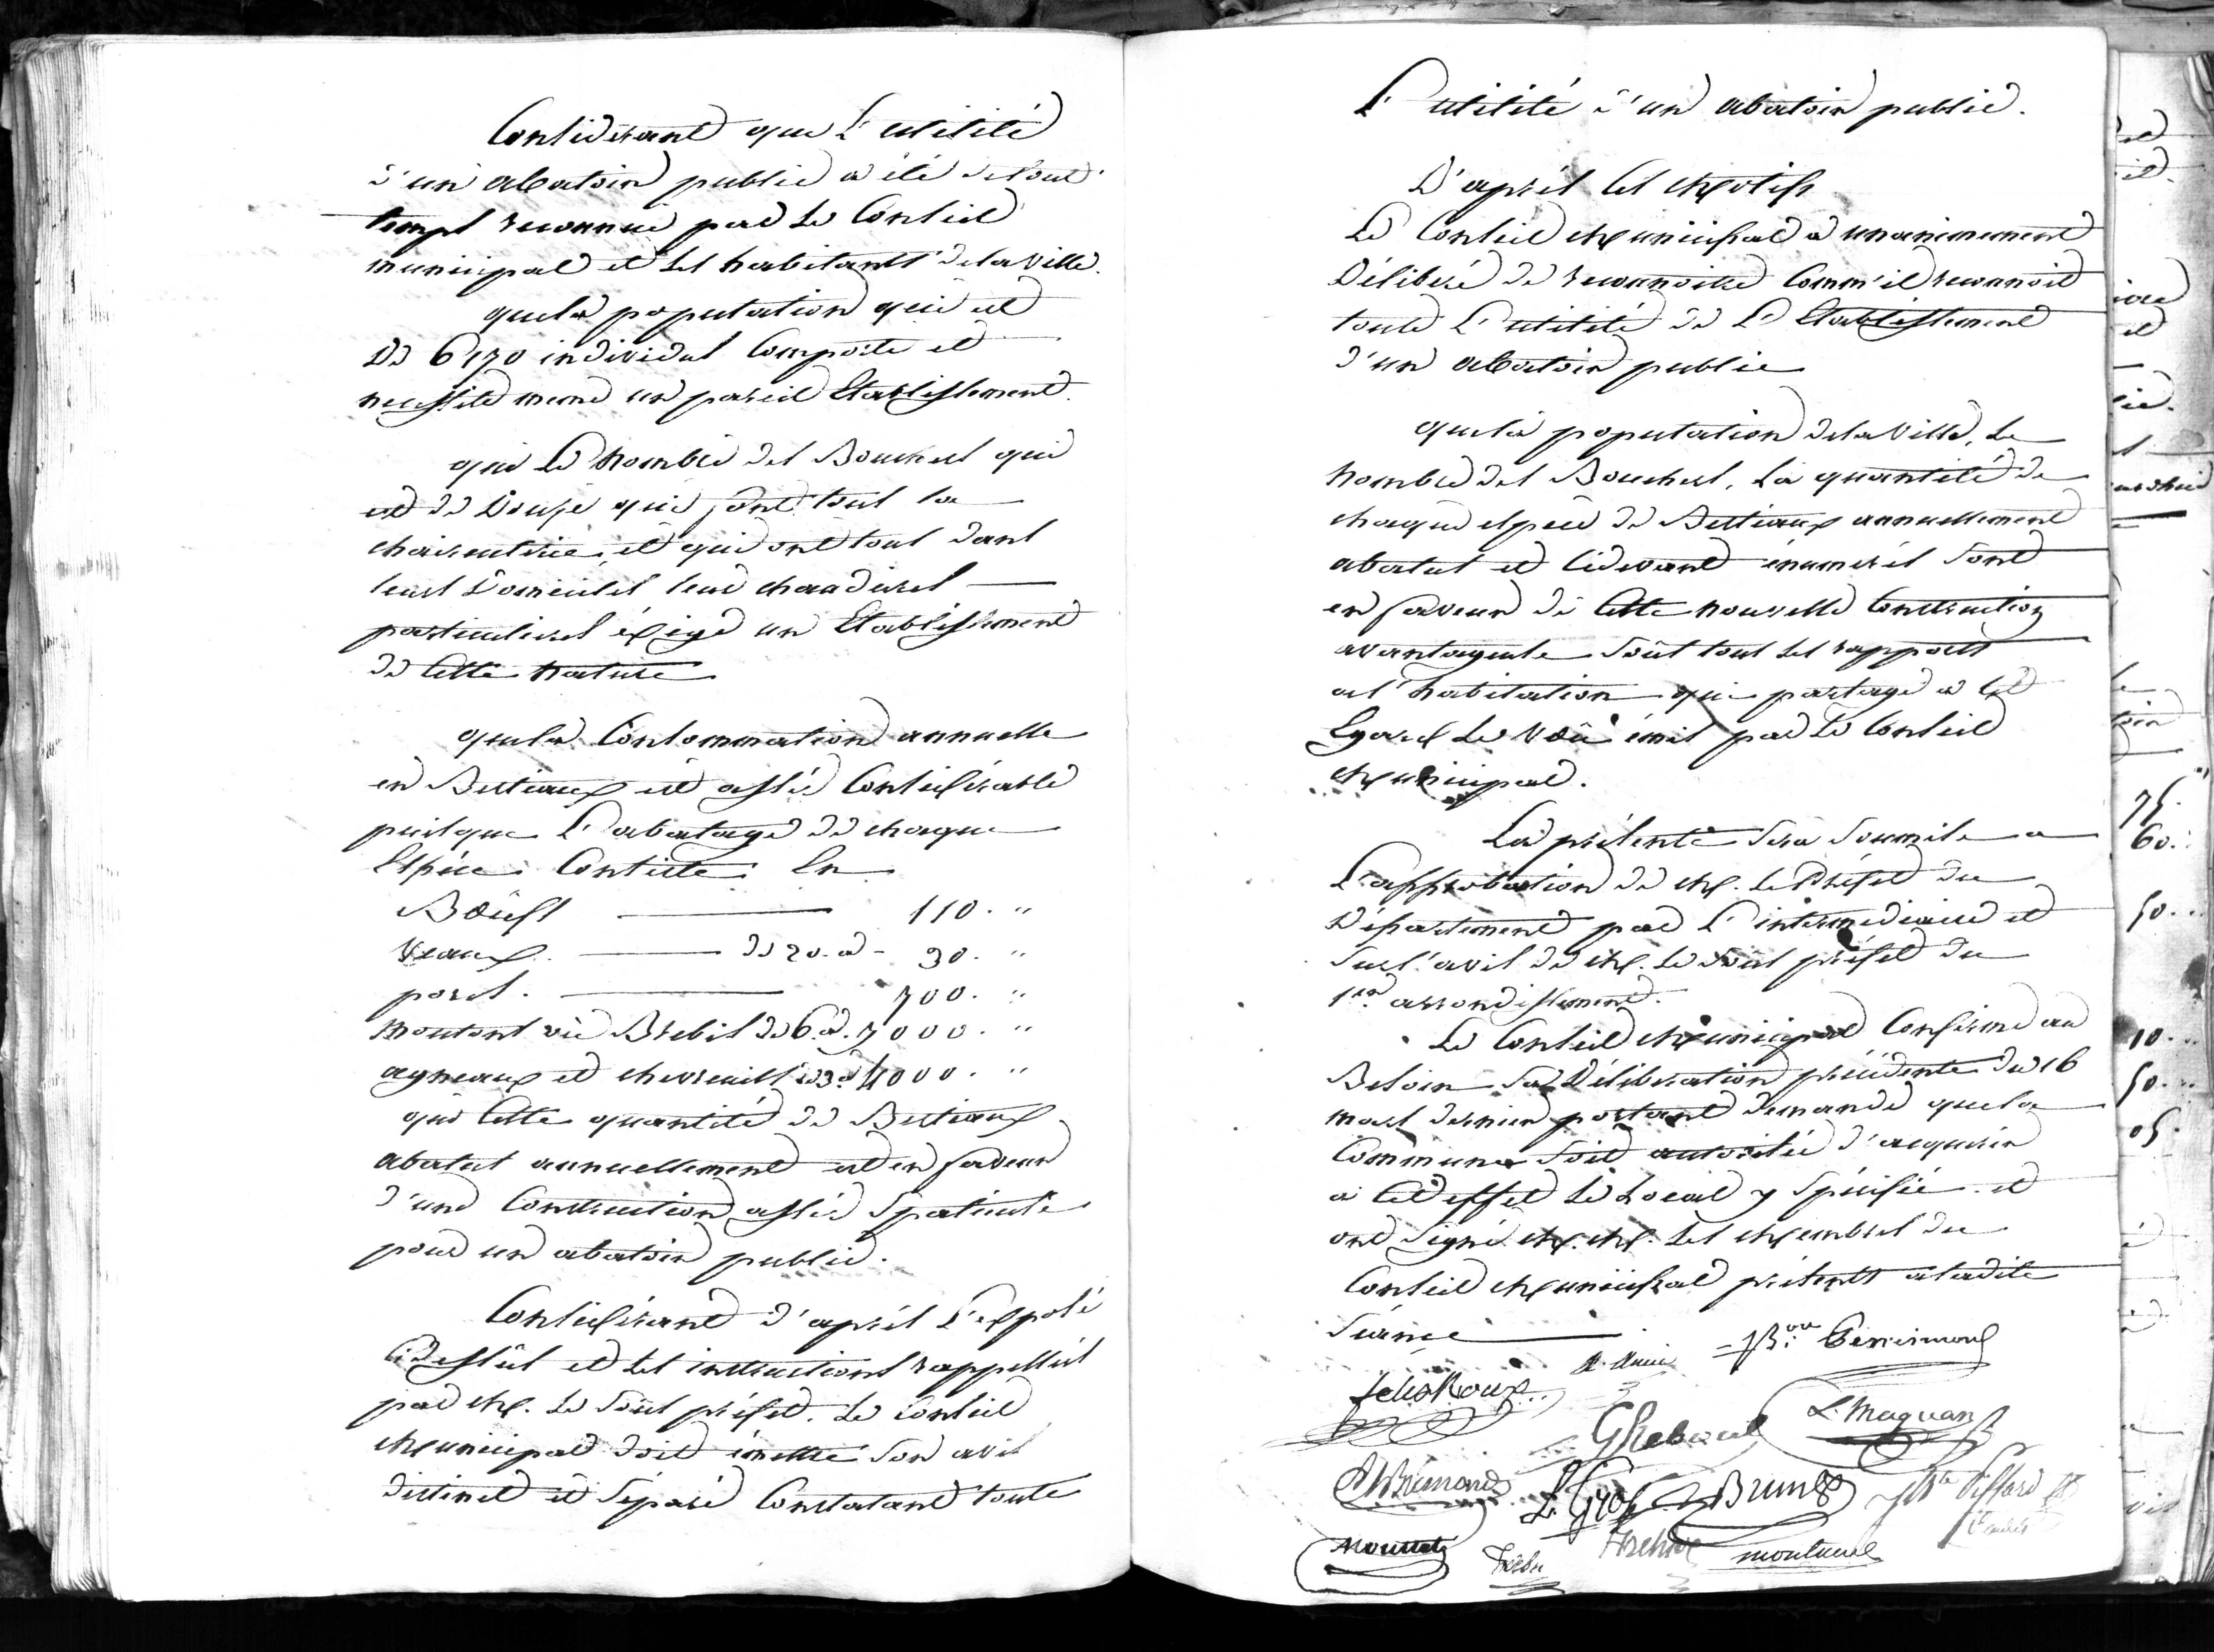 Considerant que L'utilité
d'un abatoir public a été detout
temps reconnue par Le Conseil
municipal et Les habitants dela Ville.
quela population qui est
De 6170 individus Comporte et
necessite meme un pareil Etablissement.
que Le Nombre des Bouchers qui
est de Douze qui font tous la
chaircuterie, et qui ont tous dans
leurs Domiciles leur chaudieres
particulieres éxige un Etablissement
de Cette Nature
quela Consommation annuelle
en Bestiaux est assés Considérable
puisque L'abatage de chaque
Espéce Consiste En
Bœufs 110. "
Veaux. de 20. a - 30. "
porcs. 700. "
Moutons ou Brebis de 6. a. 7000. "
agneaux et chevreaux de 3 a 4000. "
que Cette quantité de Bestiaux
abatus annuellement est en faveur
d'une Construction assés Spatieuse
pour un abatoir public.
Considérant d'aprés L'exposé
Cidessus et Les instructions rappellées
par M. Le Sous préfet. Le Conseil
Municipal doit émettre Son avis
distinct et Séparé Constatant toute
L'utilité d'un abatoir public.
D'aprés Ces Motifs
Le Conseil Municipal a unanimement
Délibéré de reconnoitre Comm'il reconnoit
toute L'utilité de L'Etablissement
d'un abatoir public
quela population dela Ville, Le
Nombre des Bouchers, La quantité de
chaque espece de Bestiaux annuellement
abatus et Cidevant énumérés Sont
en faveur de Cette nouvelle Construction
avantageuse Sous tous Les rapports
al'habitation qui partage a Cet
Egard Le Vœu émis par Le Conseil
Municipal.
La présente Sera Soumise a
L'approbation de M. Le Préfet du
Département par L'intermediaire et
Sur l'avis de M. Le Sous préfet du
1er arrondissement.
Le Conseil Municipal Confirme au
Besoin Sa Délibération précédente du 16
mars dernier portant demande quela
Commune Soit autorisée d'acquerir
a Cet effet Le Local y Spécifié. et
ont Signé M. M. Les Membres du
Conseil Municipal présents aladite
Séance
GReboul
L. Maquan
L. Gros
Brun
75.
60.
50.
10.
50.
05.